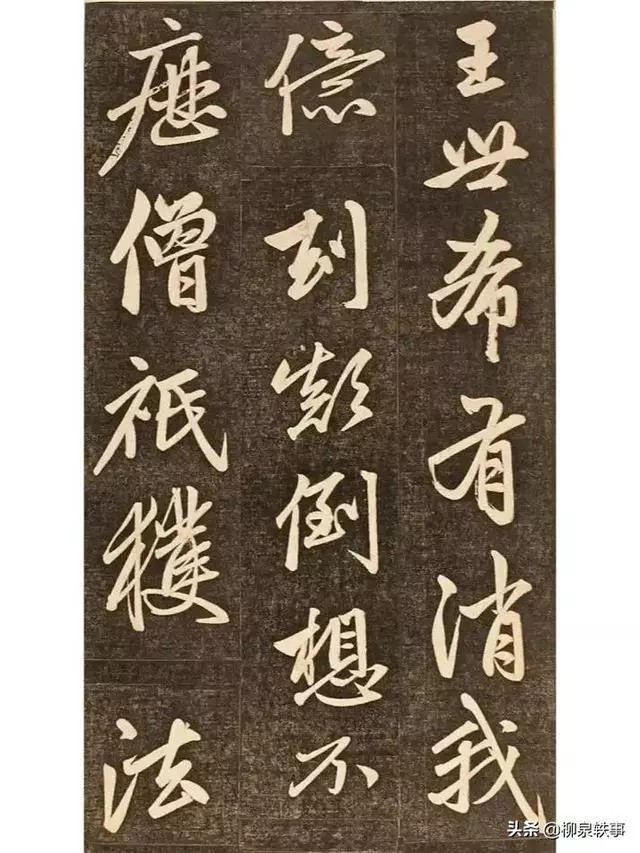 王世希有消我
億刧顛倒想不
歷僧祇穫法
头条 @柳泉轶事